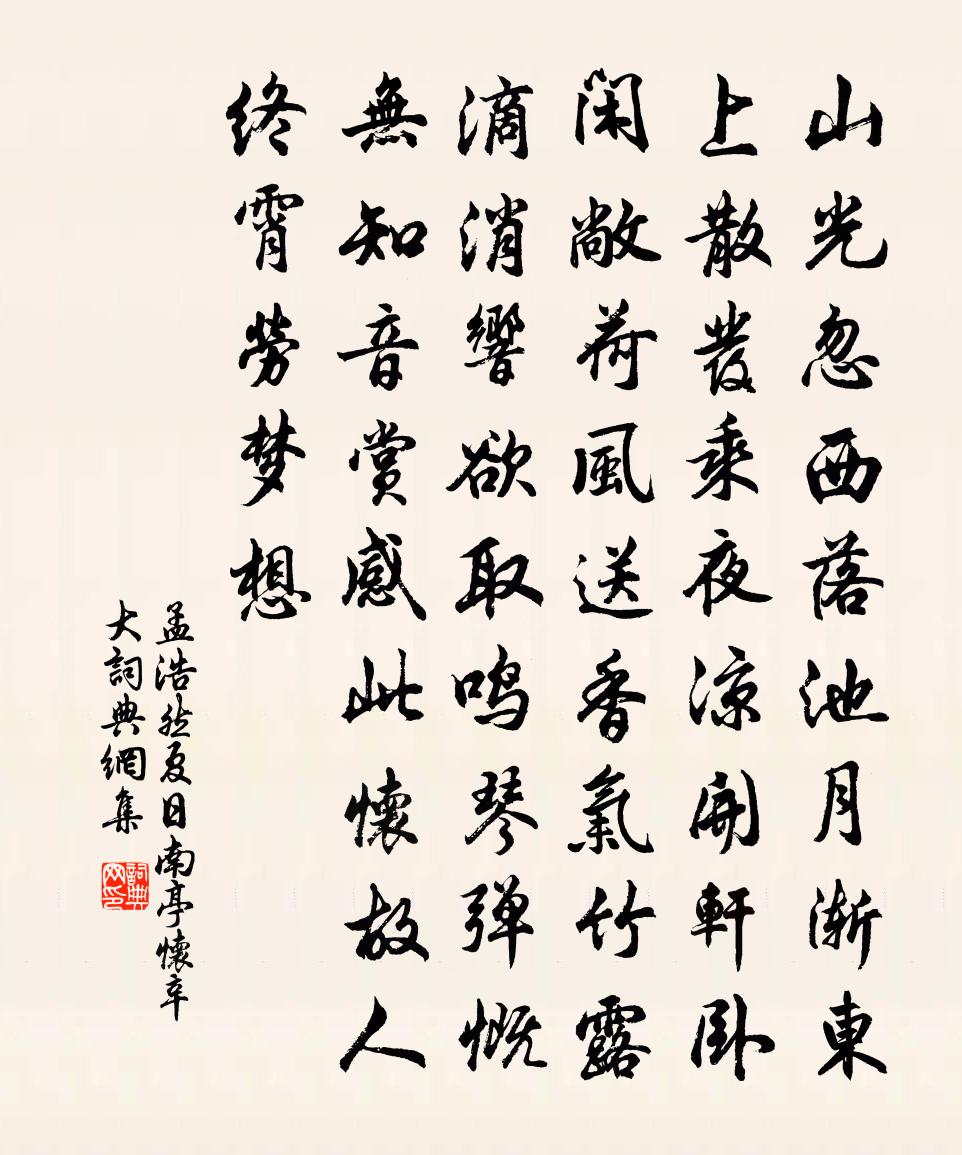 山光忽西落池月渐東
上散發乘夜涼開軒卧
閑敞荷風送香氣竹露
滴消響欲取鸣琴弹慨
無知音賞感此懷故人
终霄勞梦想
孟浩然夏日南亭懷辛
大詞典網集
詞典
网印